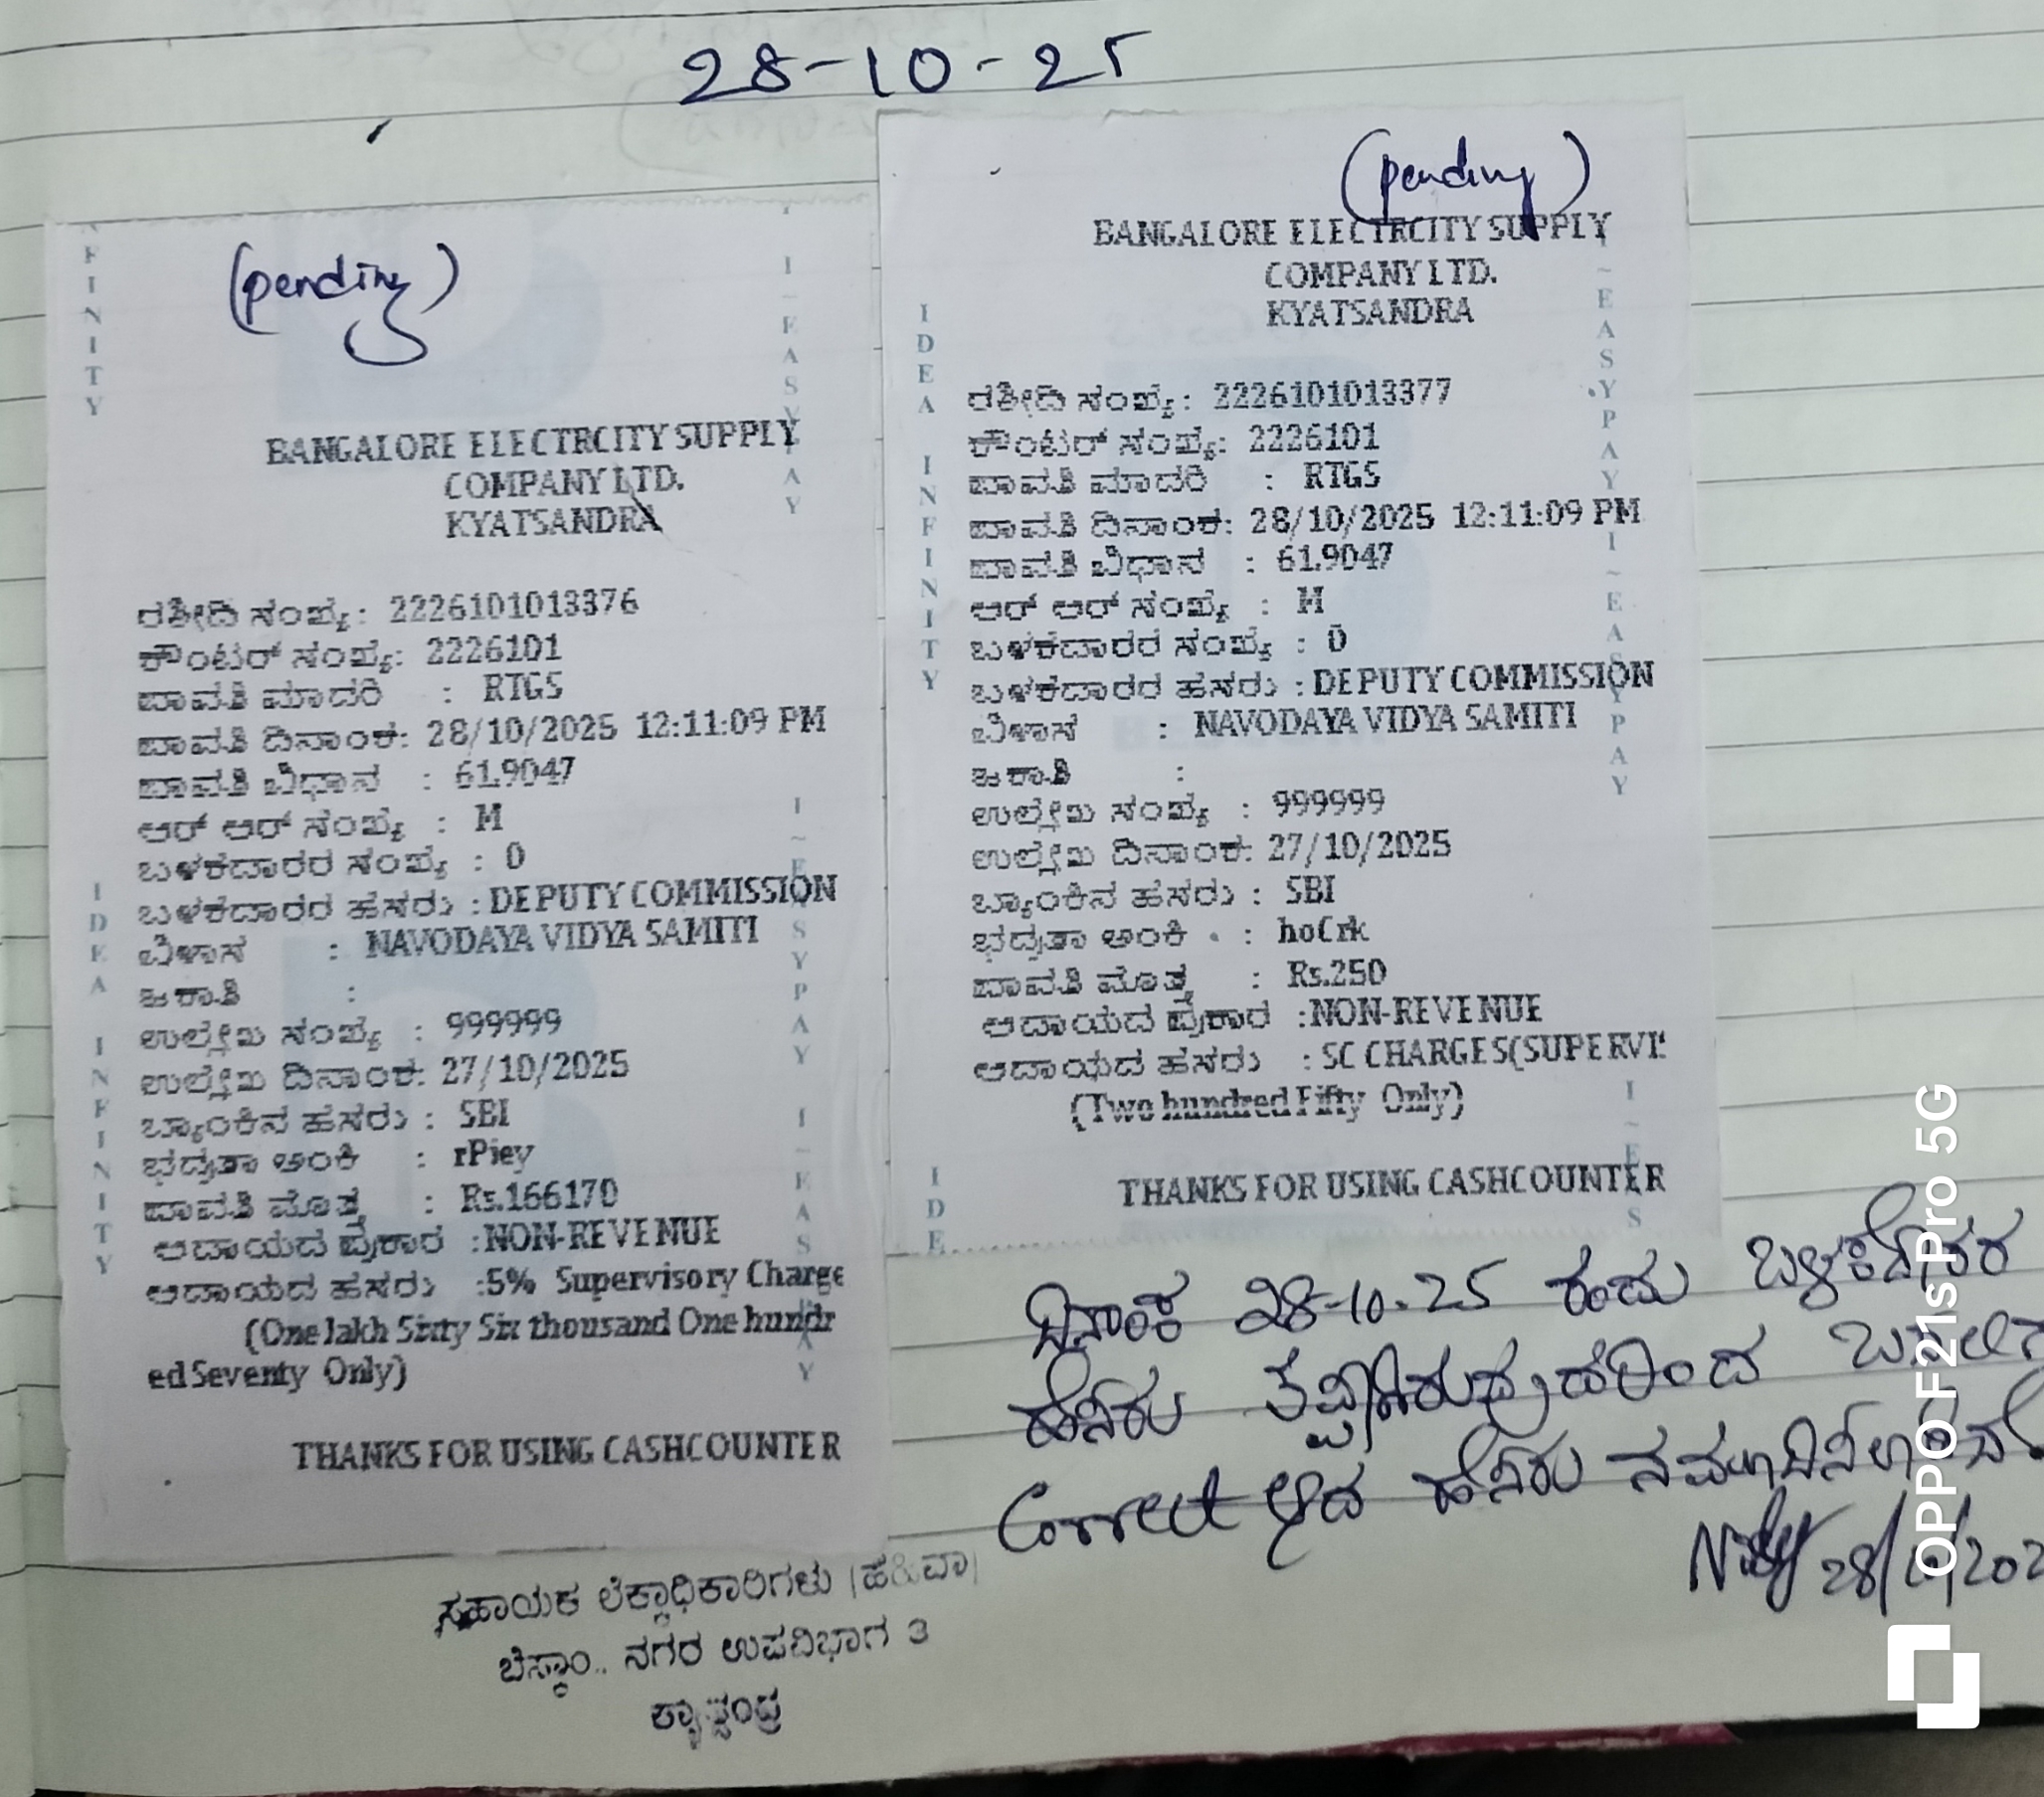 28-10-25
(pending)
BANGALORE ELECTRCITY SUPPLY
COMPANY LTD.
KYATSANDRA
ರಶೀದಿ ಸಂಖ್ಯೆ: 2226101013376
ಕೌಂಟರ್ ಸಂಖ್ಯೆ: 2226101
ಪಾವತಿ ಮಾದರಿ : RTGS
ಪಾವತಿ ದಿನಾಂಕ: 28/10/2025 12:11:09 PM
ಪಾವತಿ ವಿಧಾನ : 61.9047
ಆರ್ ಆರ್ ಸಂಖ್ಯೆ : M
ಬಳಕೆದಾರರ ಸಂಖ್ಯೆ : 0
ಬಳಕೆದಾರರ ಹೆಸರು : DEPUTY COMMISSION
ವಿಳಾಸ : NAVODAYA VIDYA SAMITI
ಜಕಾತಿ :
ಉಲ್ಲೇಖ ಸಂಖ್ಯೆ : 999999
ಉಲ್ಲೇಖ ದಿನಾಂಕ: 27/10/2025
ಬ್ಯಾಂಕಿನ ಹೆಸರು : SBI
ಭದ್ರತಾ ಅಂಕಿ : rPiey
ಪಾವತಿ ಮೊತ್ತ : Rs.166170
ಆದಾಯದ ಪ್ರಕಾರ :NON-REVENUE
ಆದಾಯದ ಹೆಸರು :5% Supervisory Charge
(One lakh Sixty Six thousand One hundr
ed Seventy Only)
THANKS FOR USING CASHCOUNTER
(pending)
BANGALORE ELECTRCITY SUPPLY
COMPANY LTD.
KYATSANDRA
ರಶೀದಿ ಸಂಖ್ಯೆ: 2226101013377
ಕೌಂಟರ್ ಸಂಖ್ಯೆ: 2226101
ಪಾವತಿ ಮಾದರಿ : RTGS
ಪಾವತಿ ದಿನಾಂಕ: 28/10/2025 12:11:09 PM
ಪಾವತಿ ವಿಧಾನ : 61.9047
ಆರ್ ಆರ್ ಸಂಖ್ಯೆ : M
ಬಳಕೆದಾರರ ಸಂಖ್ಯೆ : 0
ಬಳಕೆದಾರರ ಹೆಸರು : DEPUTY COMMISSION
ವಿಳಾಸ : NAVODAYA VIDYA SAMITI
ಜಕಾತಿ :
ಉಲ್ಲೇಖ ಸಂಖ್ಯೆ : 999999
ಉಲ್ಲೇಖ ದಿನಾಂಕ: 27/10/2025
ಬ್ಯಾಂಕಿನ ಹೆಸರು : SBI
ಭದ್ರತಾ ಅಂಕಿ : hoCrk
ಪಾವತಿ ಮೊತ್ತ : Rs.250
ಆದಾಯದ ಪ್ರಕಾರ :NON-REVENUE
ಆದಾಯದ ಹೆಸರು : SC CHARGES(SUPERVI
(Two hundred Fifty Only)
THANKS FOR USING CASHCOUNTER
ದಿನಾಂಕ 28-10-25 ರಂದು ಬಳಕೆದಾರರ
ಹೆಸರು
Correct ಆದ ಹೆಸರು
28/10/202
ಸಹಾಯಕ ಲೆಕ್ಕಾಧಿಕಾರಿಗಳು
ಬೆಸ್ಕಾಂ.. ನಗರ ಉಪವಿಭಾಗ 3
ಕ್ಯಾತ್ಸಂದ್ರ
IDEA INFINITY
I~EASYPAY
OPPO F21s Pro 5G